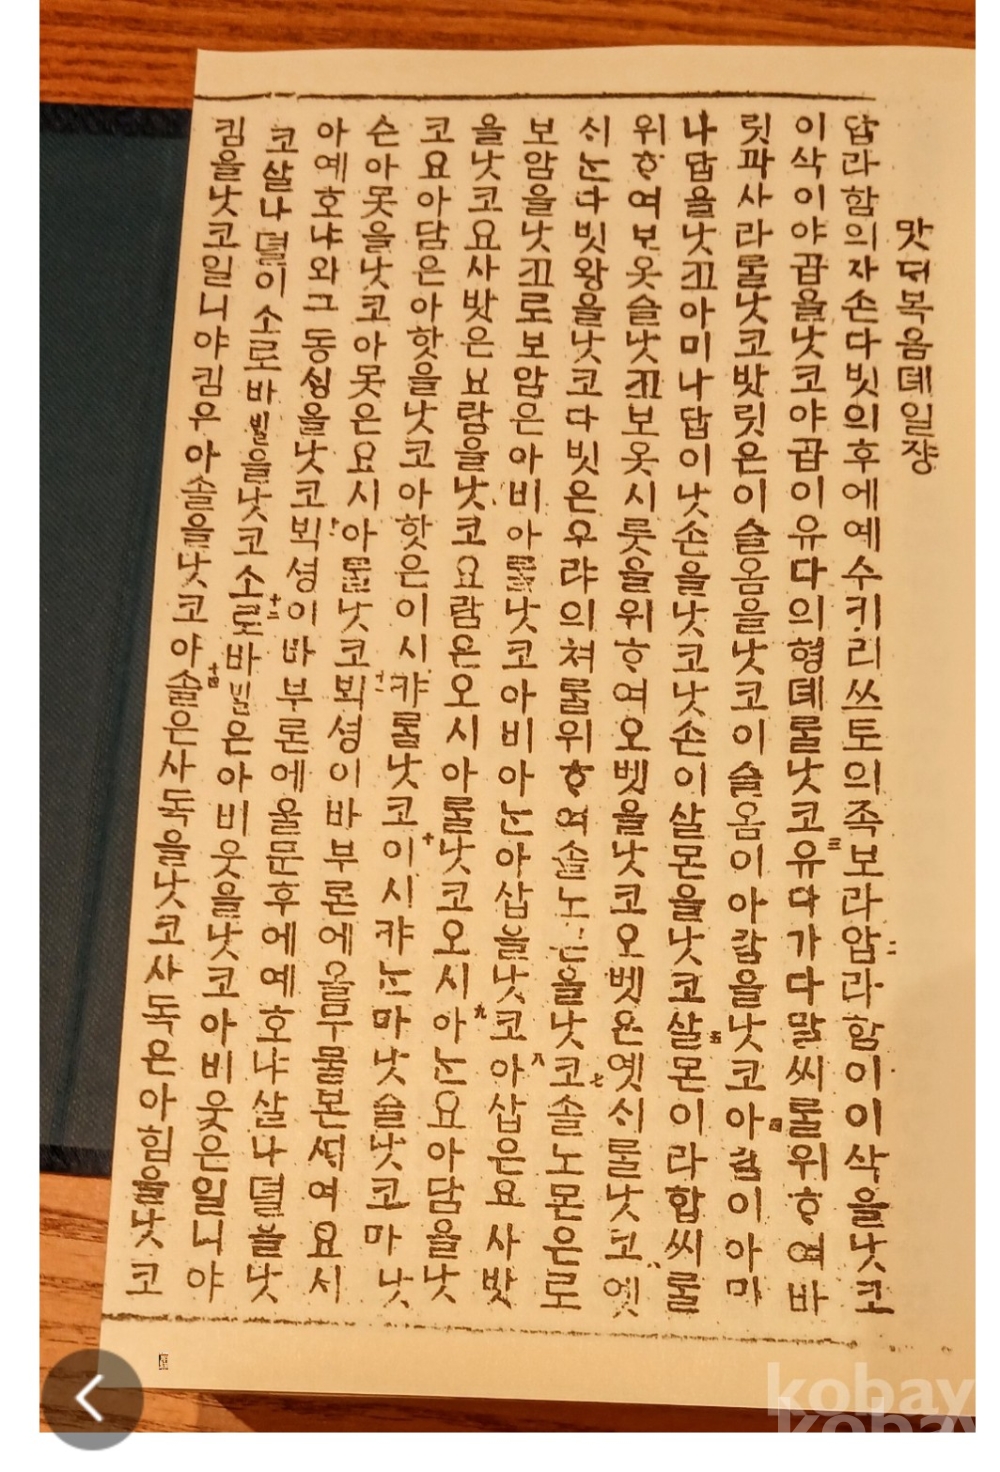 맛뎌복음뎨일쟝
답라함의자손다빗의후에예수키리쓰토의족보라二암라함이이삭을낫코
이삭이야곱을낫코야곱이유다의형뎨룰낫코三유다가다말씨룰위ᄒᆞ여바
릿파사라룰낫코밧릿은이슬옴을낫코이슬옴이아람을낫코四아람이아마
나답을낫고아미나답이낫손을낫코낫손이살몬을낫코五살몬이라합씨룰
위ᄒᆞ여보옷슬낫고보옷시룻을위ᄒᆞ여오벳을낫코오벳은옛시룰낫코옛
시ᄂᆞᆫ다빗왕을낫코다빗은우랴의쳐룰위ᄒᆞ여솔노몬을낫코七솔노몬은로
보암을낫고로보암은아비아룰낫코아비아ᄂᆞᆫ아삽을낫코八아삽은요사밧
을낫코요사밧은요람을낫코요람은오시아룰낫코九오시아ᄂᆞᆫ요아담을낫
코요아담은아핫을낫코아핫은이시캬룰낫코十이시캬ᄂᆞᆫ마낫슬낫코마낫
슨아못을낫코아못은요시아룰낫코十一뵉셩이바부론에올무물몬셔여요시
아예호냐와그동ᄉᆡᆼ을낫코뵉셩이바부론에올문후에예호냐살나뎔을낫
코살나뎔이소로바빌을낫코十二소로바빌은아비웃을낫코아비웃은일니야
킴을낫코일니야킴우아솔을낫코아十四솔은사독을낫코사독은아힘을낫코
kobay
kobay